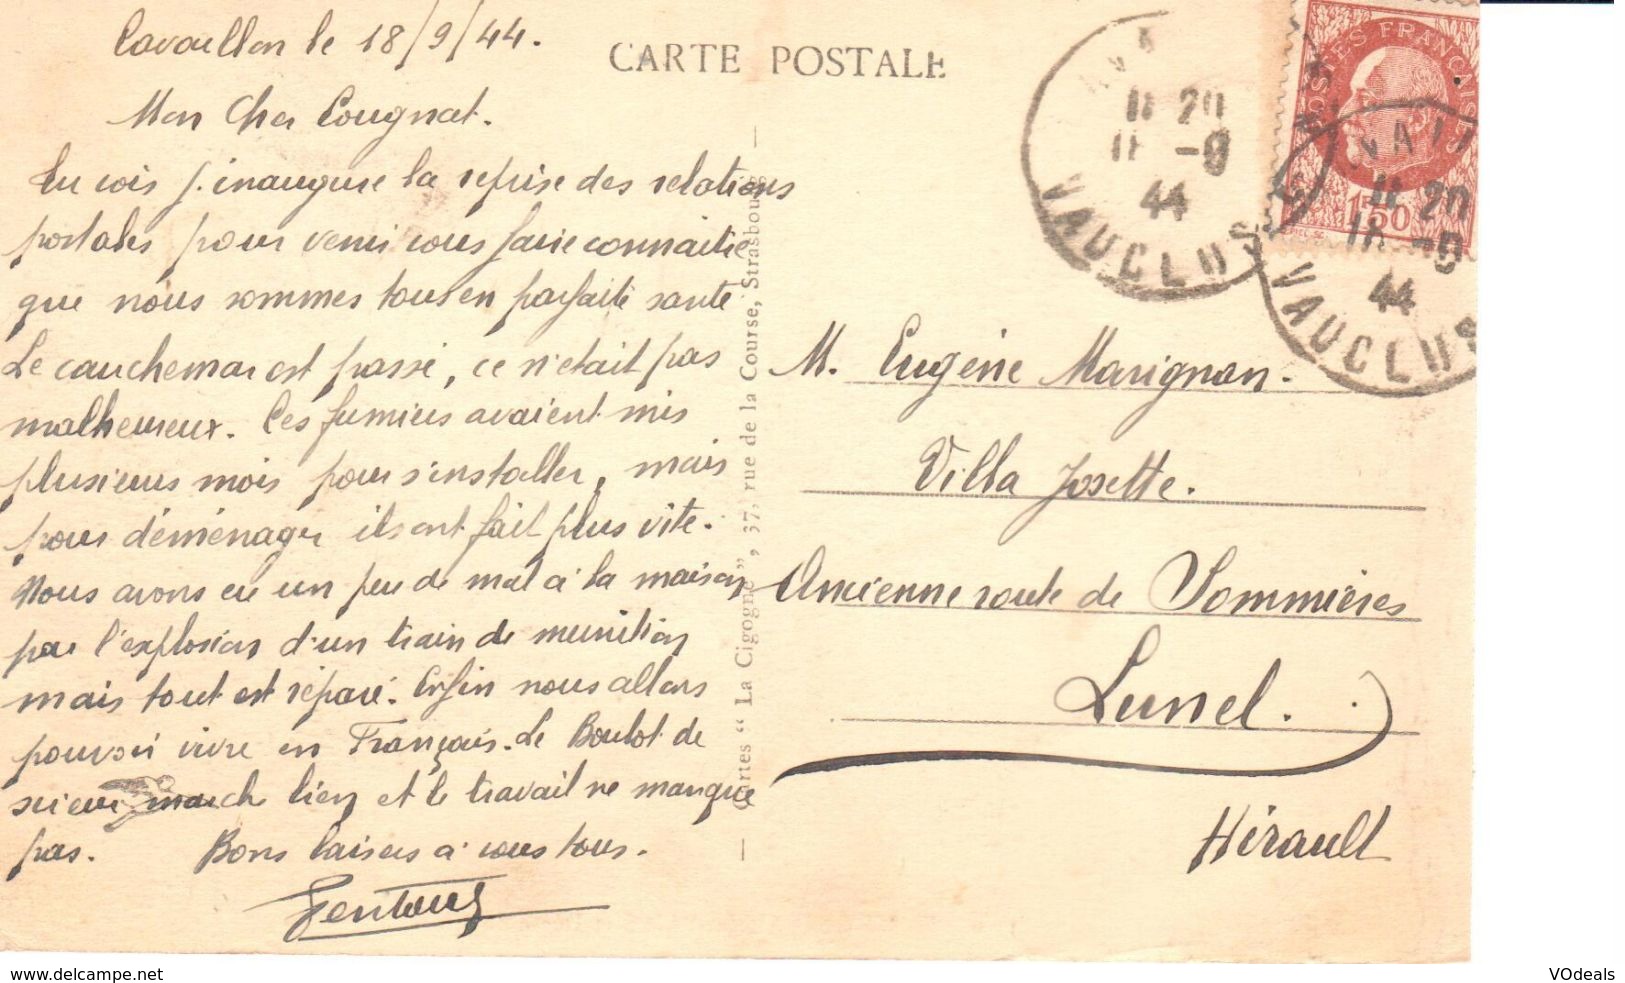 Cavaillon le 18/9/44.
CARTE POSTALE
Mon Cher Cougnat.
Tu vois j'inaugure la reprise des relations
postales pour venir vous faire connaitre
que nous sommes tous en parfaite santé
Le cauchemar est passé, ce n'était pas
malheureux. Ces fumiers avaient mis
plusieurs mois pour s'installer, mais
pour déménager ils ont fait plus vite.
Nous avons eu un peu de mal à la maison
par l'explosion d'un train de munition
mais tout est réparé. Enfin nous allons
pouvoir vivre en Français. Le Boulot de
scieur marche bien et le travail ne manque
pas. Bons baisers à vous tous.
Cartes "La Cigogne", 37, rue de la Course, Strasbourg
POSTES FRANÇAISES
1F50
11 20
18 -9
44
VAUCLUSE
11 20
18 -9
44
VAUCLUSE
M. Eugène Marignan.
Villa Josette.
Ancienne route de Sommières
Lunel.
Hérault
www.delcampe.net
VOdeals